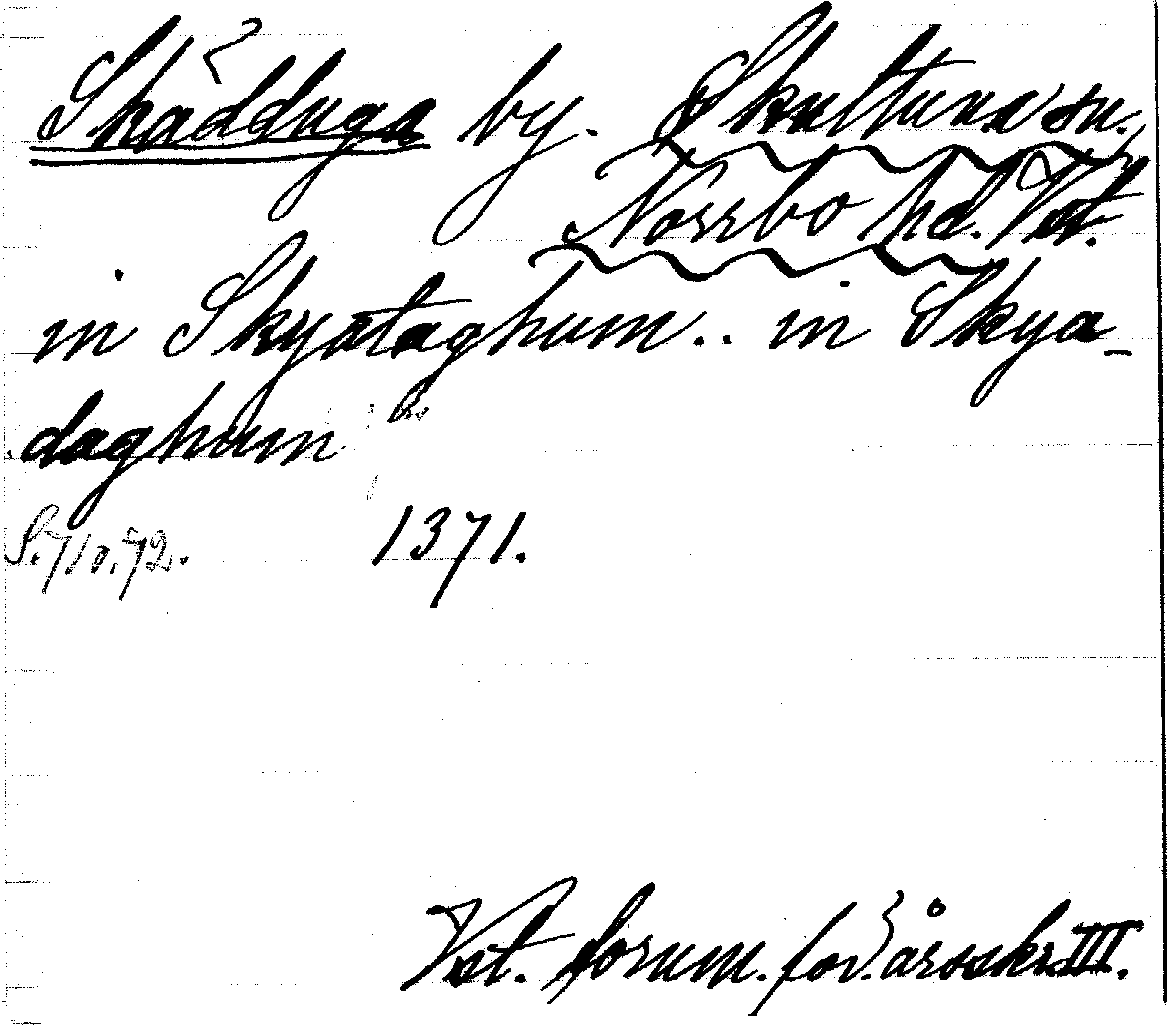 Skädduga by. Skultuna sn.,
Norrbo hd. Vst.
in Skyataghum.. in Skya-
daghum
S. 71 o. 72. 1371.
Vst. fornm. för. årsskr. III.